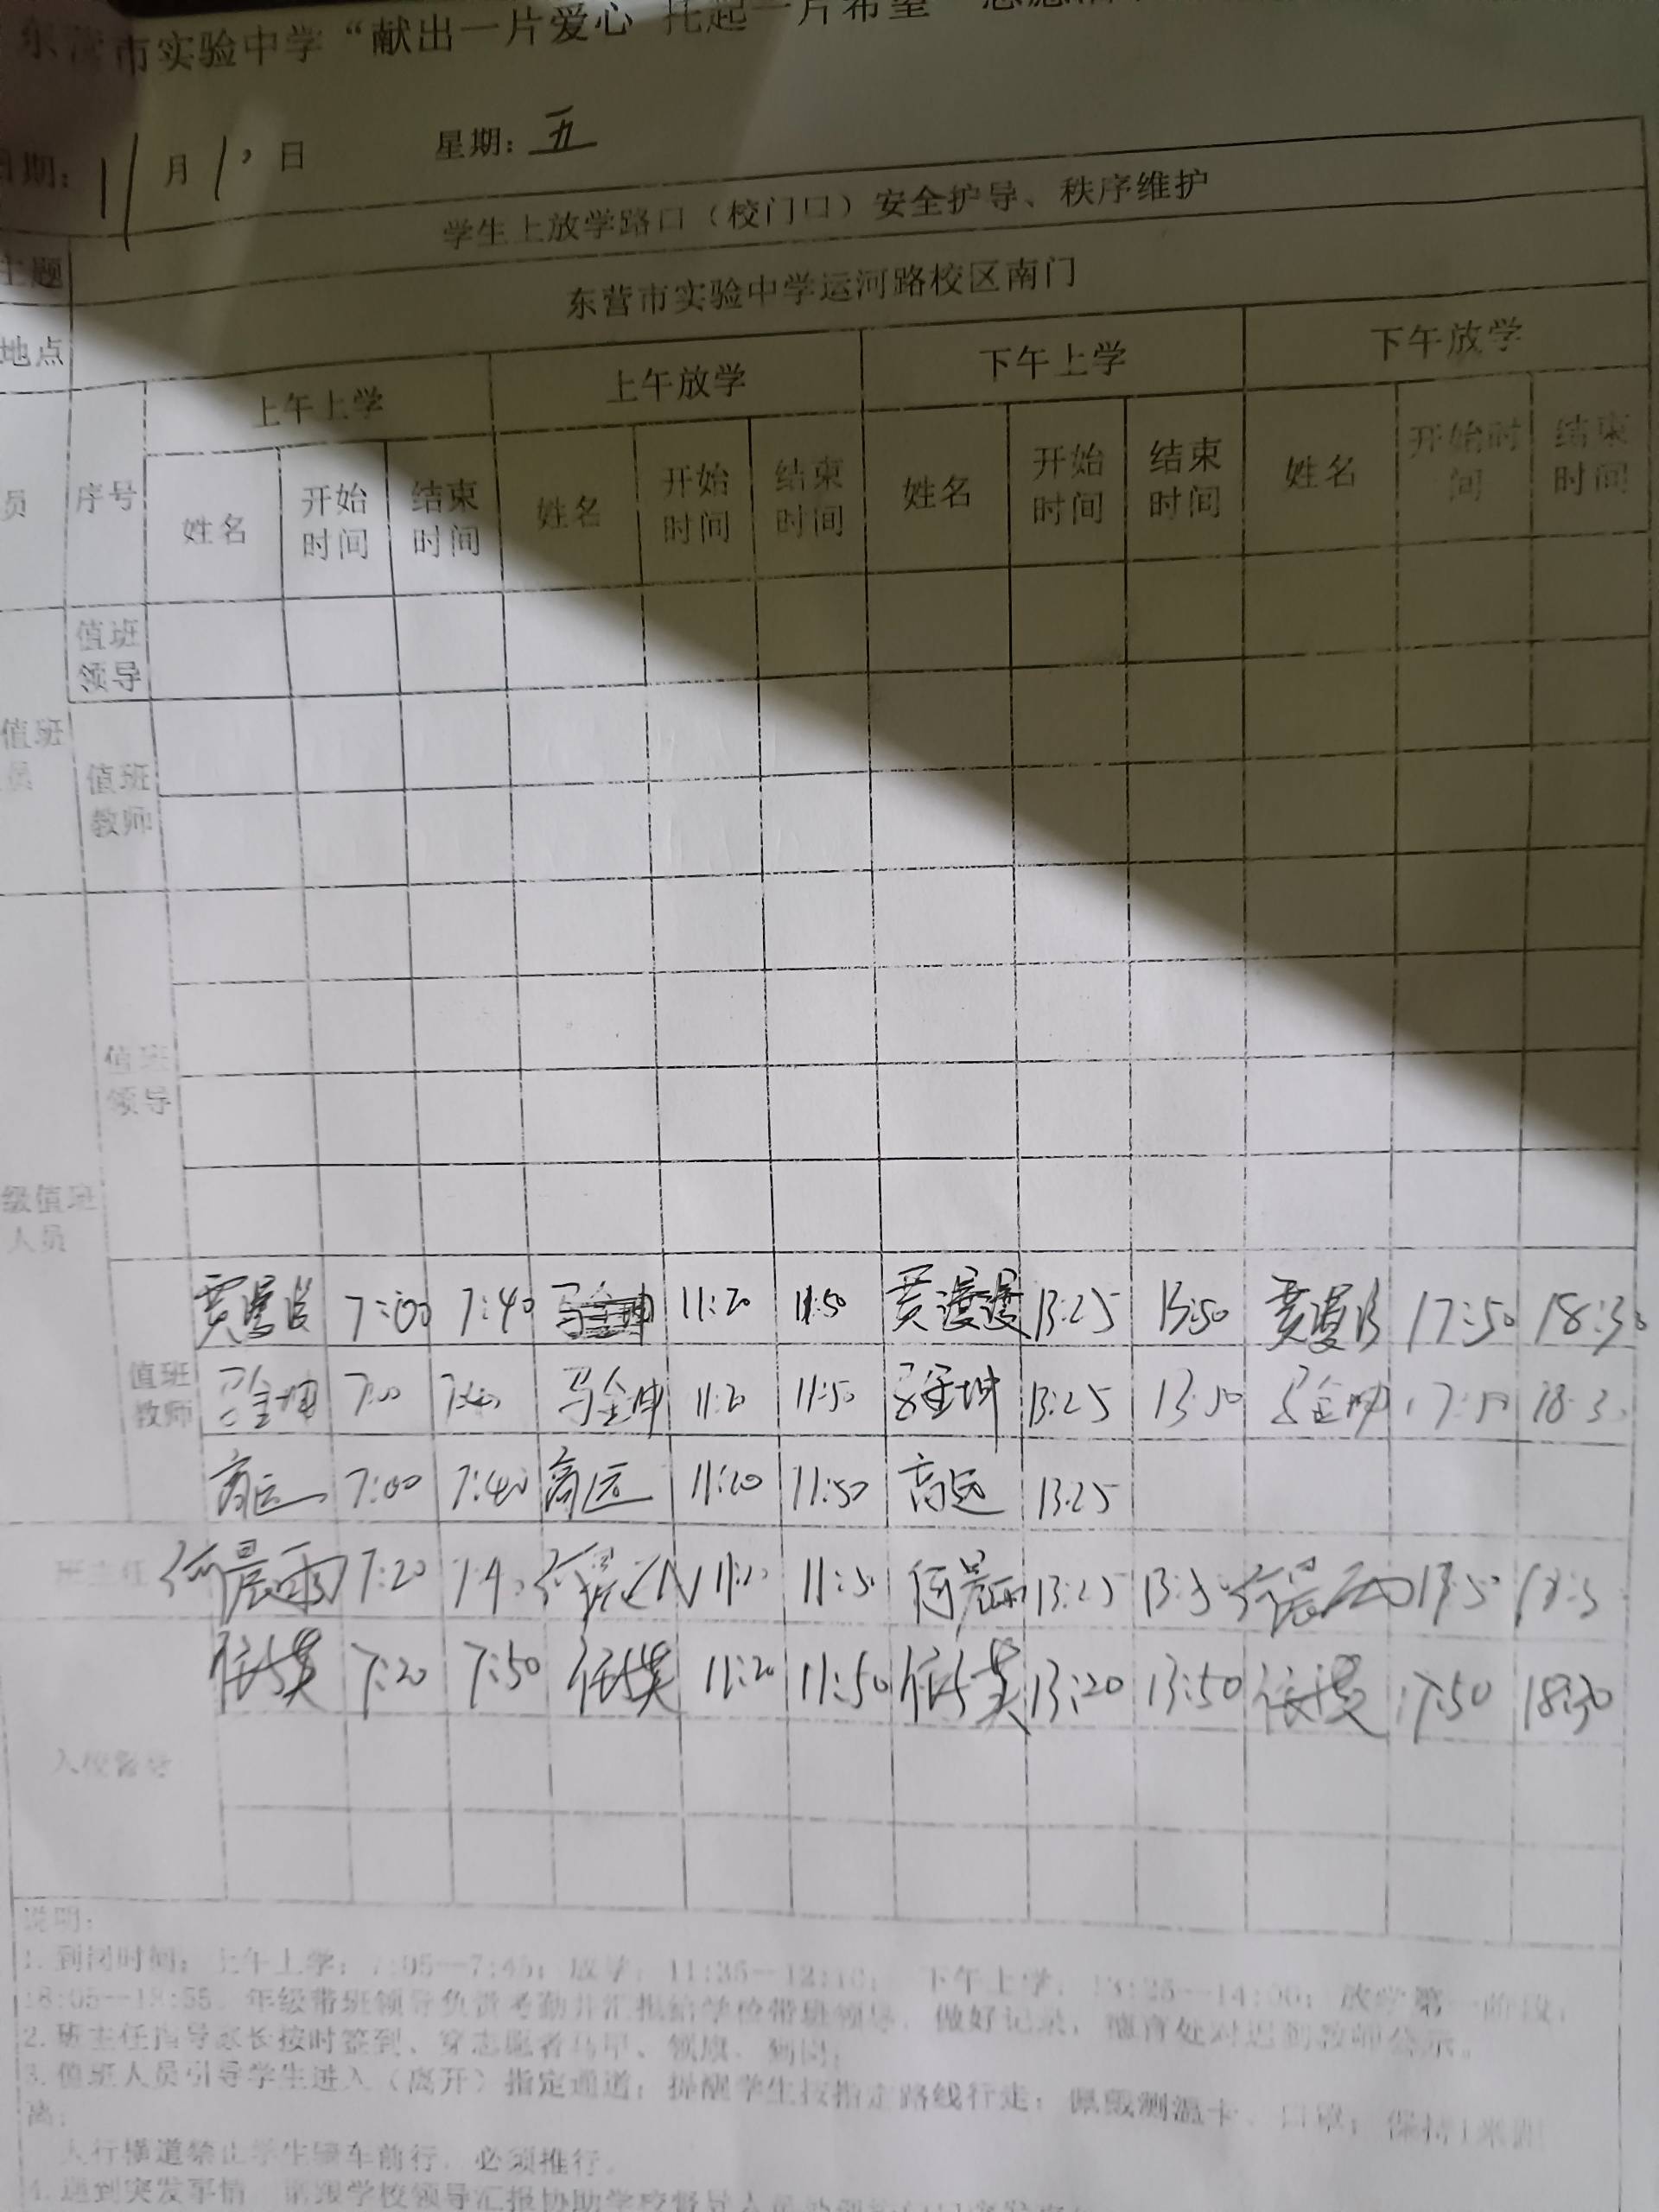 东营市实验中学“献出一片爱心 托起一片希望”
日期: 11月1日 星期: 五
主题 学生上放学路口（校门口）安全护导、秩序维护
地点 东营市实验中学运河路校区南门
员 序号 上午上学 上午放学 下午上学 下午放学
姓名 开始时间 结束时间 姓名 开始时间 结束时间 姓名 开始时间 结束时间 姓名 开始时间 结束时间
值班领导
值班 值班教师
值班领导
级值班人员
值班教师
贾漫漫 7:00 7:40 马金坤 11:20 11:50 贾漫漫 13:25 13:50 贾漫漫 17:50 18:30
马金坤 7:00 7:40 马金坤 11:20 11:50 马金坤 13:25 13:50 马金坤 17:50 18:30
高远 7:00 7:40 高远 11:20 11:50 高远 13:25
班主任 何晨雨 7:20 7:40 何晨雨 11:20 11:50 何晨雨 13:25 13:50 何晨雨 17:50 18:30
7:20 7:50 11:20 11:50 13:20 13:50 17:50 18:30
说明:
1.到岗时间：上午上学：7:05—7:45；放学：11:35—12:10； 下午上学：13:25—14:00；放学第一阶段：
18:05—18:55。年级带班领导负责考勤并汇报给学校带班领导，做好记录，德育处对迟到教师公示。
2.班主任指导家长按时签到、穿志愿者马甲、领旗、到岗；
3.值班人员引导学生进入（离开）指定通道；提醒学生按指定路线行走；佩戴测温卡、口罩；保持1米距
离；
人行横道禁止学生骑车前行，必须推行。
4.遇到突发事情